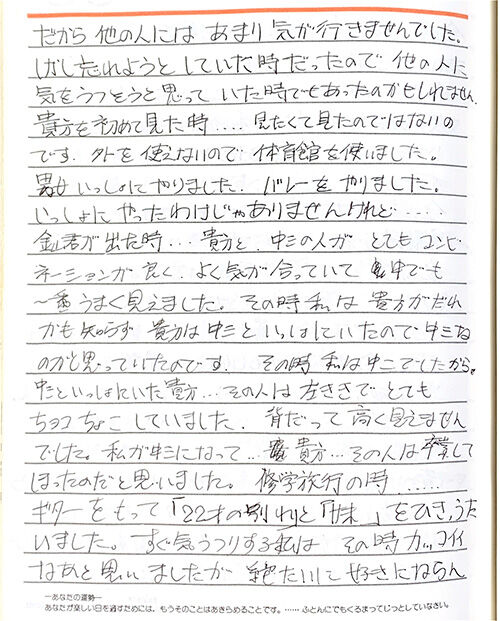 だから 他の人には あまり 気が行きませんでした。
しばし忘れようと していた時だったので 他の人に
気をうつそうと思って いた時でもあったのかもしれません。
貴方を初めて見た時‥‥ 見たくて見たのではないの
です。外を使えないので 体育館を使いました。
男女 いっしょにやりました。バレーをやりました。
いっしょに やったわけじゃありませんけれど‥‥‥
君が出た時‥‥貴方と、中三の人が とても コンビ
ネーションが 良く、よく気が合っていて 中でも
一番うまく見えました。その時 私は 貴方がだれ
かも 知らず 貴方は 中三と いっしょにいたので 中三な
のかと思っていたのです。その時 私は中二でしたから。
中三といっしょにいた貴方‥‥その人は 左ききで とても
ちョコちょこしていました。背だって 高く見えません
でした。私が中三になって‥‥貴方‥‥その人は 卒業して
しまったのだと思いました。修学旅行の時‥‥‥
ギターをもって「22才の別れ」と「 」をひき、うた
いました。すぐ気うつりする私は その時 カッコイイ
なあと 思いましたが 絶たいに 好きにならん
―あなたの運勢―
あなたが楽しい日を過すためには、もうそのことはあきらめることです。……ふとんにでもくるまってじっとしていなさい。